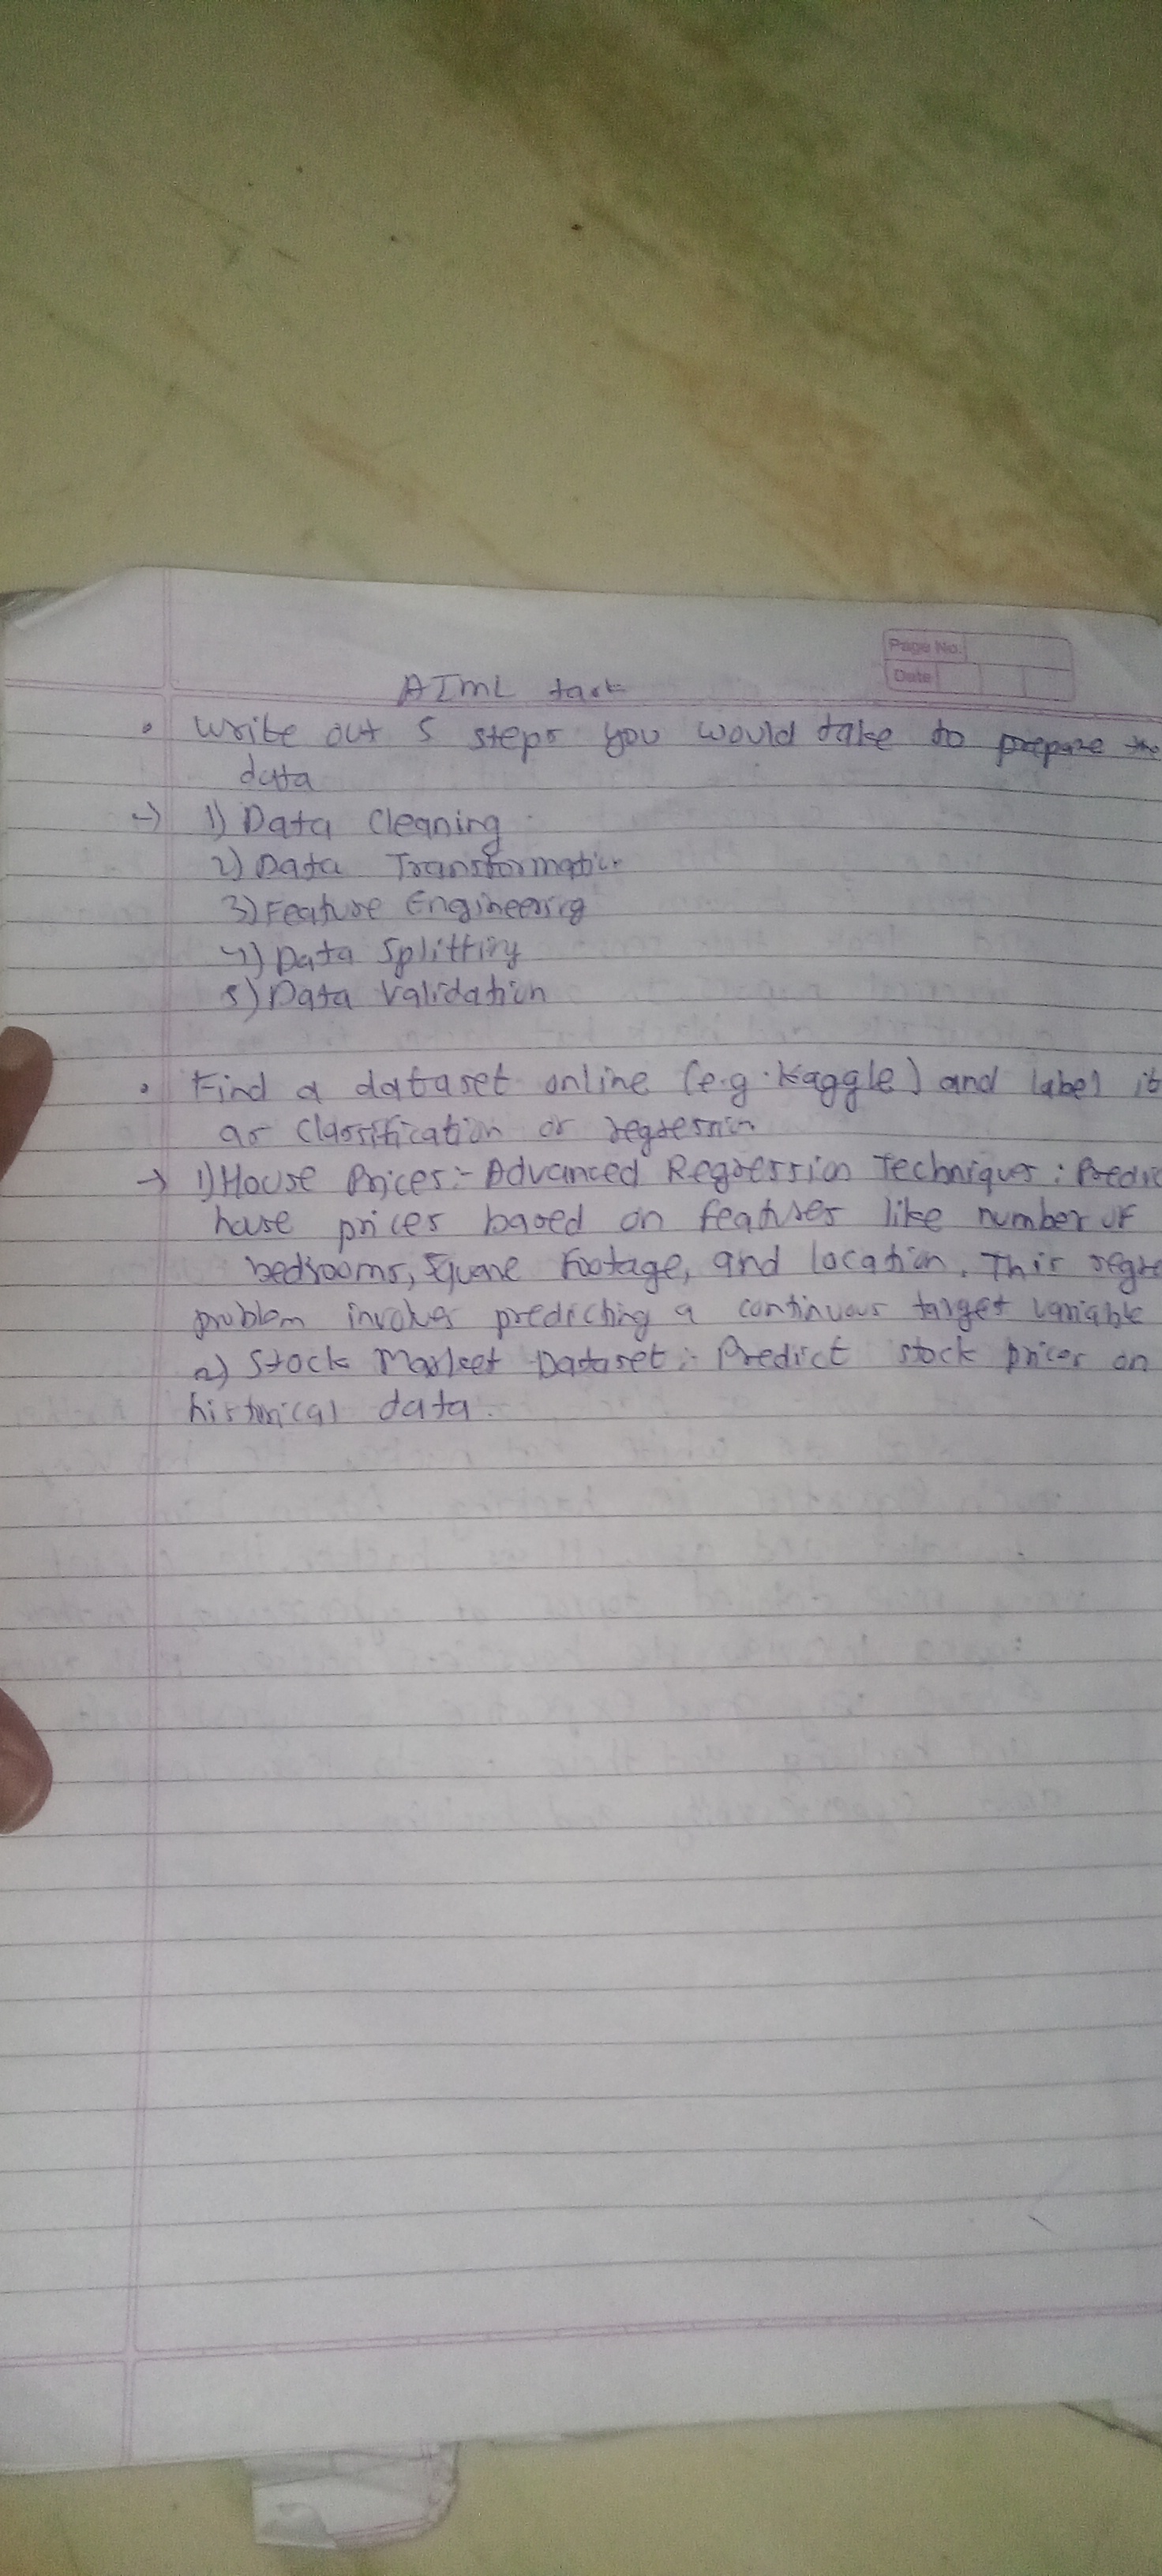 Page No.
Date
AIML task
• Write out 5 steps you would take to prepare the
data
→ 1) Data Cleaning
2) Data Transformation
3) Feature Engineering
4) Data Splitting
5) Data Validation
• Find a dataset online (e.g. Kaggle) and label it
as classification or regression
→ 1) House Prices:- Advanced Regression Techniques: Predic
house prices based on features like number of
bedrooms, Square Footage, and location. This regre
problem involves predicting a continuous target variable
2) Stock Market Dataset:- Predict stock prices on
historical data.